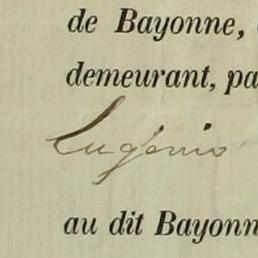 de Bayonne,
demeurant, pa
Eugénio
au dit Bayonn